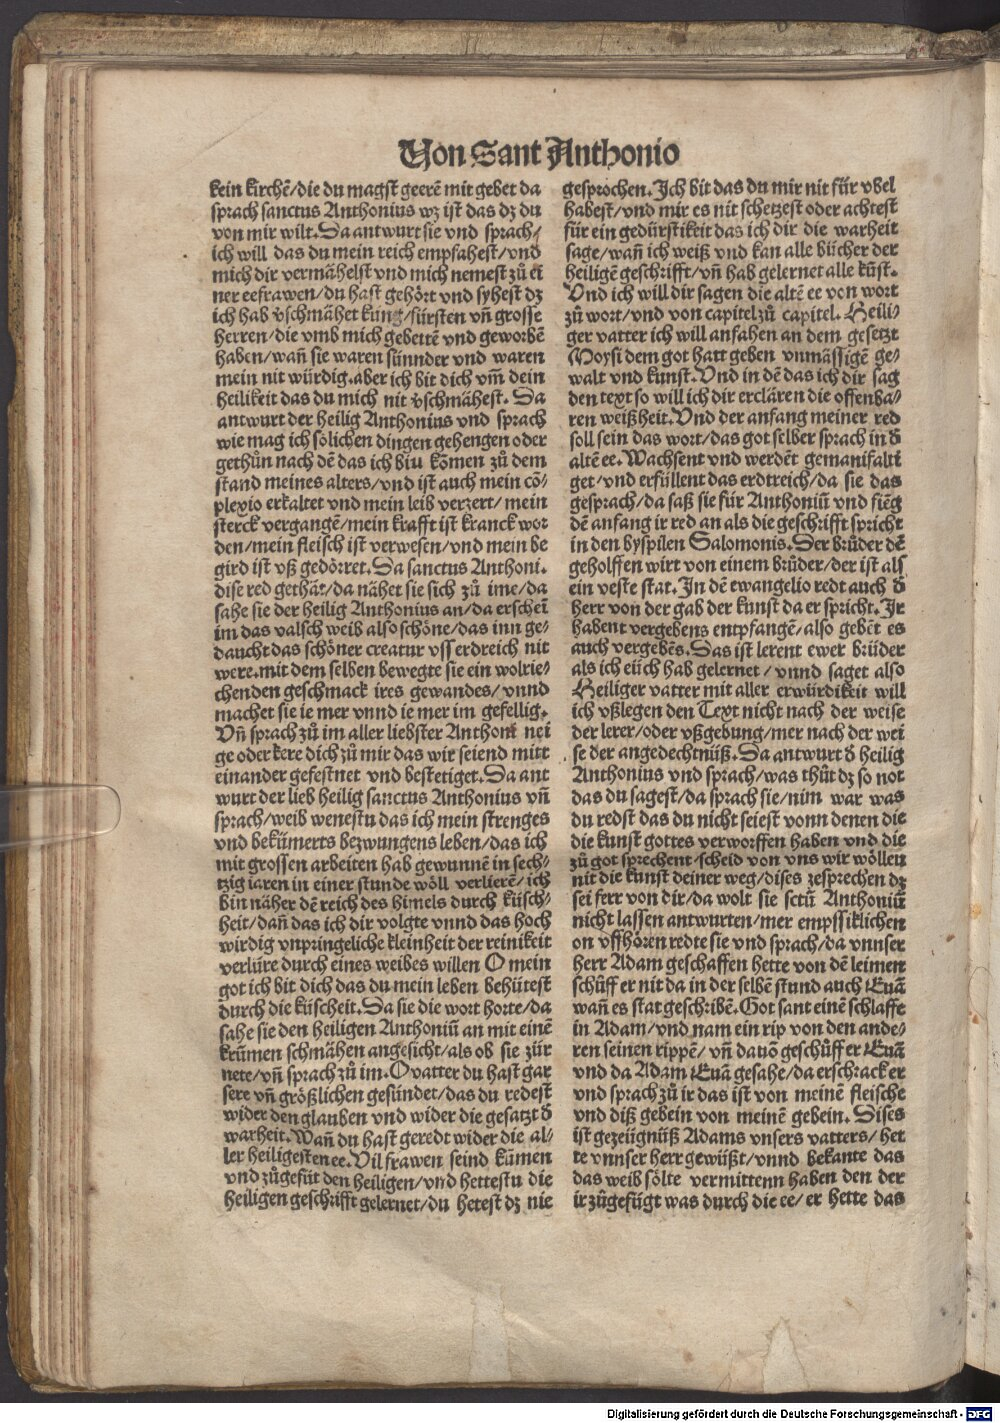 Von Sant Anthonio
kein kirchē/die du magst geerē mit gebet da
sprach sanctus Anthonius wz ist das dz du
von mir wilt. Da antwurt sie vnd sprach/
ich will das du mein reich empfahest/vnd
mich dir vermähelst vnd mich nemest zů ei
ner eefrawen/du hast gehört vnd syhest dz
ich hab v̄schmähet kung/fürsten vñ grosse
herren/die vmb mich gebettē vnd geworbē
haben/wañ sie waren sünnder vnd waren
mein nit würdig.aber ich bit dich vm̄ dein
heilikeit das du mich nit v̄schmähest. Da
antwurt der heilig Anthonius vnd sprach
wie mag ich sölichen dingen gehengen oder
gethůn nach dē das ich biu kōmen zů dem
stand meines alters/vnd ist auch mein cō/
plexio erkaltet vnd mein leib verzert/mein
sterck vergangē/mein krafft ist kranck wor
den/mein fleisch ist verwesen/vnd mein be
gird ist vß gedörret. Da sanctus Anthoni.
dise red gethät/da nähet sie sich zů ime/da
sahe sie der heilig Anthonius an/da erscheī
im das valsch weib also schöne/das inn ge/
daucht das schöner creatur vff erdreich nit
were.mit dem selben bewegte sie ein wolrie/
chenden geschmack ires gewandes/vnnd
machet sie ie mer vnnd ie mer im gefellig.
Vñ sprach zů im aller liebster Anthoni nei
ge oder kere dich zů mir das wir seiend mitt
einander gefestnet vnd bestetiget. Da ant
wurt der lieb heilig sanctus Anthonius vñ
sprach/weib wenestu das ich mein strenges
vnd bekümerts bezwungens leben/das ich
mit grossen arbeiten hab gewunnē in sech/
tzig iaren in einer stunde wöll verlierē/ich
bin näher dē reich des himels durch küsch/
heit/dañ das ich dir volgte vnnd das hoch
wirdig vnpringeliche kleinheit der reinikeit
verlüre durch eines weibes willen O mein
got ich bit dich das du mein leben behütest
durch die küscheit. Da sie die wort horte/da
sahe sie den heiligen Anthoniū an mit einē
krūmen schmähen angesicht/als ob sie zür
nete/vñ sprach zů im. O vatter du hast gar
sere vñ größlichen gesündet/das du redest
wider den glauben vnd wider die gesatzt d̄
warheit. Wañ du hast geredt wider die al/
ler heiligesten ee. Vil frawen seind kūmen
vnd zůgefüt den heiligen/vnd hettestu die
heiligen geschrifft gelernet/du hetest dz nie
gesprochen. Ich bit das du mir nit für vbel
habest/vnd mir es nit schetzest oder achtest
für ein gedürstikeit das ich dir die warheit
sage/wañ ich weiß vnd kan alle bücher der
heiligē geschrifft/vñ hab gelernet alle kūst.
Vnd ich will dir sagen die altē ee von wort
zů wort/vnd von capitel zů capitel. Heili/
ger vatter ich will anfahen an dem gesetzt
Moysi dem got hatt geben vnmässigē ge/
walt vnd kunst. Vnd in dē das ich dir sag
den text so will ich dir erclären die offenba/
ren weißheit. Vnd der anfang meiner red
soll sein das wort/das got selber sprach in d̄
altē ee. Wachsent vnd werdēt gemanifalti
get/vnd erfüllent das erdtreich/da sie das
gesprach/da saß sie für Anthoniū vnd fiēg
dē anfang ir red an als die geschrifft spricht
in den byspilen Salomonis. Der brůder dē
geholffen wirt von einem brůder/der ist als
ein veste stat. In dē ewangelio redt auch d̄
herr von der gab der kunst da er spricht. Ir
habent vergebens entpfangē/also gebēt es
auch vergebēs. Das ist lerent ewer brüder
als ich eüch hab gelernet / vnnd saget also
Heiliger vatter mit aller erwürdikeit will
ich vßlegen den Text nicht nach der weise
der lerer/oder vßgebung/mer nach der wei
se der angedechtnüß. Da antwurt d̄ heilig
Anthonius vnd sprach/was thůt dz so not
das du sagest/da sprach sie/nim war was
du redst das du nicht seiest vonn denen die
die kunst gottes verworffen haben vnd die
zů got sprechent scheid von vns wir wöllen
nit die kunst deiner weg/dises zesprechen dz
sei ferr von dir/da wolt sie sctū Anthoniū
nicht lassen antwurten/mer empssiklichen
on vffhören redte sie vnd sprach/da vnnser
herr Adam geschaffen hette von dē leimen
schůff er nit da in der selbē stund auch Euā
wañ es stat geschribē. Got sant einē schlaffe
in Adam/vnd nam ein rip von den ande/
ren seinen rippē/ vñ dauō geschůff er Euā
vnd da Adam Euā gesahe/da erschrack er
vnd sprach zů ir das ist von meinē fleische
vnd diß gebein von meinē gebein. Dises
ist gezeügnüß Adams vnsers vatters/ het
te vnnser herr gewüßt/vnnd bekante das
das weib sölte vermittenn haben den der
ir zůgefügt was durch die ee/ er hette das
Digitalisierung gefördert durch die Deutsche Forschungsgemeinschaft - DFG